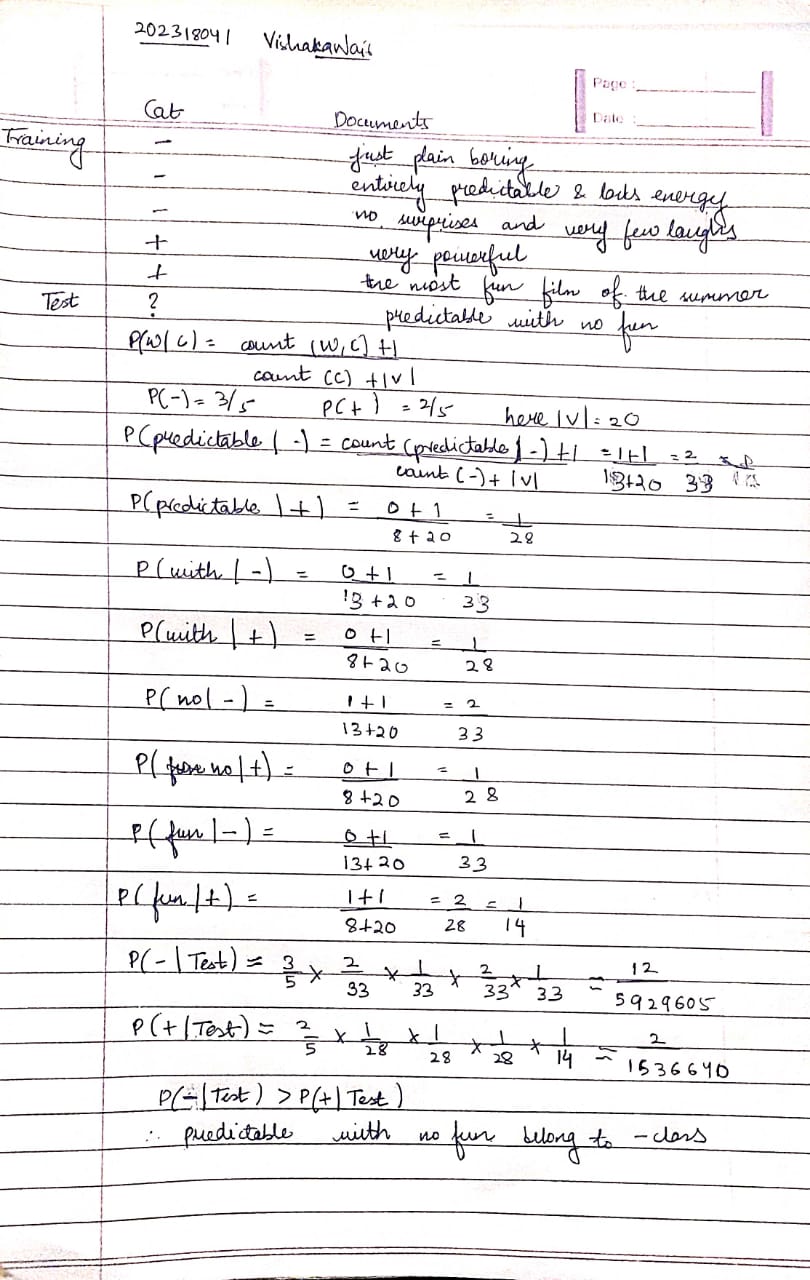 202318041 Vishakawais
Page :
Date :
Cat Documents
Training - just plain boring
- entirely predictable & lacks energy
- no surprises and very few laughs
+ very powerful
+ the most fun film of the summer
Test ? predictable with no fun
P(w|c) = count (w,c) +1
count (c) + |v|
P(-) = 3/5 P(+) = 2/5 here |v| = 20
P(predictable | -) = count (predictable | -) +1 = 1+1 = 2
count (-) + |v| 13+20 33
P(predictable | +) = 0+1 = 1
8+20 28
P(with | -) = 0+1 = 1
13+20 33
P(with | +) = 0+1 = 1
8+20 28
P(no | -) = 1+1 = 2
13+20 33
P( no | +) = 0+1 = 1
8+20 28
P(fun | -) = 0+1 = 1
13+20 33
P(fun | +) = 1+1 = 2 = 1
8+20 28 14
P(- | Test) = 3/5 × 2/33 × 1/33 × 2/33 × 1/33 = 12/5929605
P(+ | Test) = 2/5 × 1/28 × 1/28 × 1/28 × 1/14 = 2/1536640
P(- | Test) > P(+ | Test)
∴ predictable with no fun belong to - class